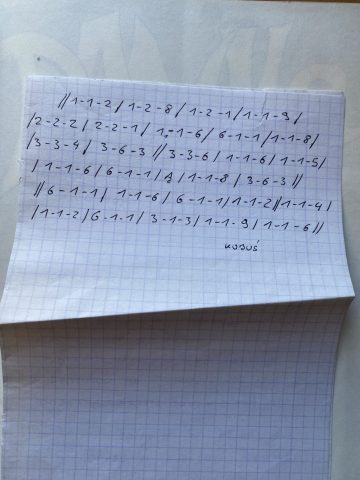 //1-1-2/1-2-8/1-2-1/1-1-9/
/2-2-2/2-2-1/1-1-6/6-1-1/1-1-8/
/3-3-4/3-6-3//3-3-6/1-1-6/1-1-5/
/1-1-6/6-1-1/A/1-1-8/3-6-3//
//6-1-1/1-1-6/6-1-1/1-1-2//1-1-4/
/1-1-2/6-1-1/3-1-3/1-1-9/1-1-6//
KOBUŚ